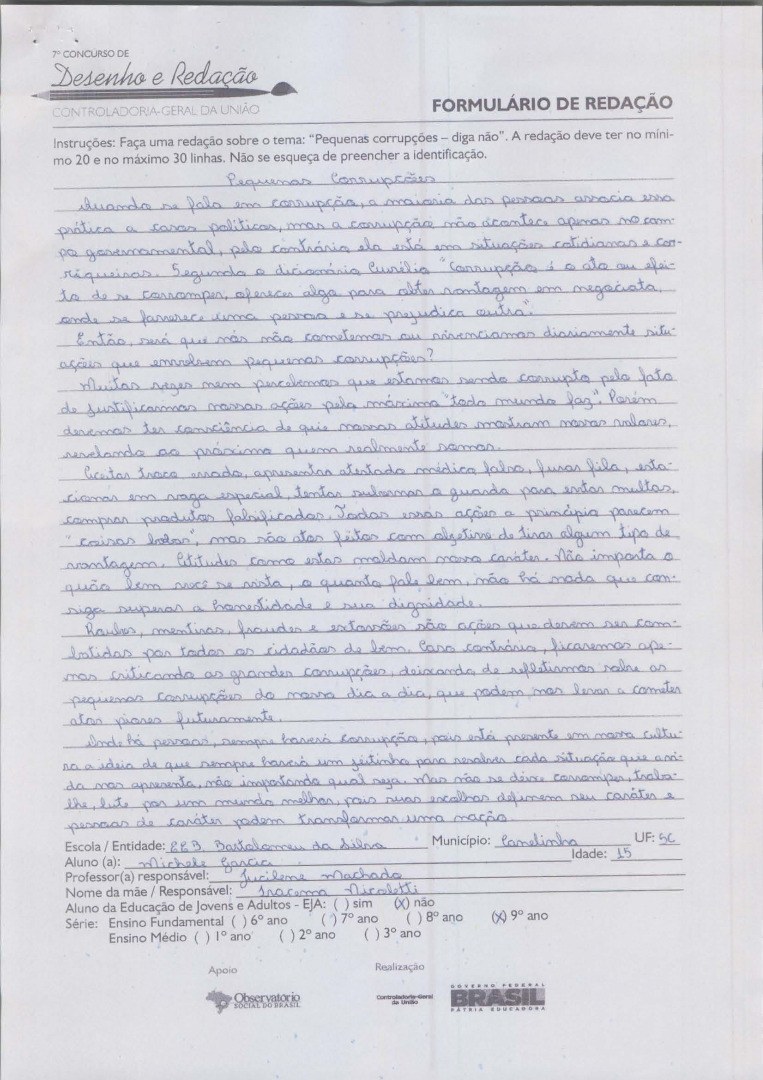 7º CONCURSO DE
Desenho e Redação
CONTROLADORIA-GERAL DA UNIÃO
FORMULÁRIO DE REDAÇÃO
Instruções: Faça uma redação sobre o tema: “Pequenas corrupções – diga não”. A redação deve ter no míni-
mo 20 e no máximo 30 linhas. Não se esqueça de preencher a identificação.
Pequenas Corrupções
Quando se fala em corrupção, a maioria das pessoas associa essa
prática a casos políticos, mas a corrupção não acontece apenas no cam-
po governamental, pelo contrário ela está em situações cotidianas e cor-
riqueiras. Segundo o dicionário Aurélio "Corrupção é o ato ou efei-
to de se corromper, oferecer algo para obter vantagem em negociata,
onde se favorece uma pessoa e se prejudica outra".
Então, será que nós não cometemos ou vivenciamos diariamente situ-
ações que envolvem pequenas corrupções?
Muitas vezes nem percebemos que estamos sendo corrupto pelo fato
de justificarmos nossas ações pela máxima "todo mundo faz". Porém
devemos ter consciência de que nossas atitudes mostram nossos valores,
revelando ao próximo quem realmente somos.
Aceitar troco errado, apresentar atestado médico falso, furar fila, esta-
cionar em vaga especial, tentar subornar o guarda para evitar multas,
comprar produtos falsificados. Todas essas ações a princípio parecem
"coisas bobas", mas são atos feitos com objetivo de tirar algum tipo de
vantagem. Atitudes como estas moldam nosso caráter. Não importa o
quão bem você se vista, o quanto fale bem, não há nada que con-
siga superar a honestidade e sua dignidade.
Roubos, mentiras, fraudes e extorsões são ações que devem ser com-
batidas por todos os cidadãos de bem. Caso contrário, ficaremos ape-
nas criticando as grandes corrupções, deixando de refletirmos sobre as
pequenas corrupções do nosso dia a dia, que podem nos levar a cometer
atos piores futuramente.
Onde há pessoas, sempre haverá corrupção, pois está presente em nossa cultu-
ra a ideia de que sempre haverá um jeitinho para resolver cada situação que a vi-
da nos apresenta, não importando qual seja. Mas não se deixe corromper, traba-
lhe, lute por um mundo melhor, pois suas escolhas definem seu caráter e
pessoas de caráter podem transformar uma nação.
Escola / Entidade: EEB. Bartolomeu da Silva Município: Canelinha UF: SC
Aluno (a): Michele Garcia Idade: 15
Professor(a) responsável: Jucilene Machado
Nome da mãe / Responsável: Iracema Nicoletti
Aluno da Educação de Jovens e Adultos - EJA: ( ) sim (X) não
Série: Ensino Fundamental ( ) 6º ano ( ) 7º ano ( ) 8º ano (X) 9º ano
Ensino Médio ( ) 1º ano ( ) 2º ano ( ) 3º ano
Apoio Realização
Observatório
SOCIAL DO BRASIL
Controladoria-Geral
da União
GOVERNO FEDERAL
BRASIL
PÁTRIA EDUCADORA